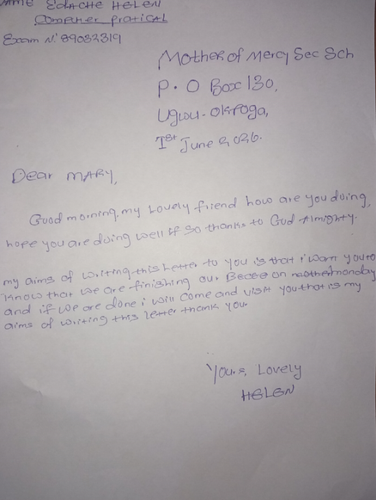 NAME EDACHE HELEN
COMPUTER PRATICAL
Exam Nº 89032319
Mother of Mercy Sec Sch
P. O Box 130,
Ugwu-Okpoga,
1st June 2026.
Dear MARY,
Good morning, my Lovely friend how are you doing,
hope you are doing well if so thanks to God Almighty.
my aims of writing this Letter to you is that i warn you to
know that we are finishing our Becee on monday
and if we are done i will come and visit you that is my
aims of writing this letter thank you.
Yours Lovely
HELEN